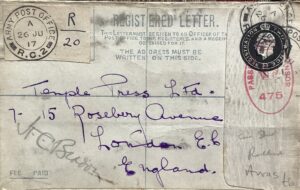 ARMY POST OFFICE
A
26 JU
17
R.C.2
R
20
REGISTERED LETTER.
THIS LETTER MUST BE GIVEN TO AN OFFICER OF THE
POST OFFICE TO BE REGISTERED, AND A RECEIPT
OBTAINED FOR IT.
THE ADDRESS MUST BE
WRITTEN ON THIS SIDE.
PASSED
CENSOR
475
Temple Press Ltd.
7-15 Rosebery Avenue
London E.C
England.
FEE PAID